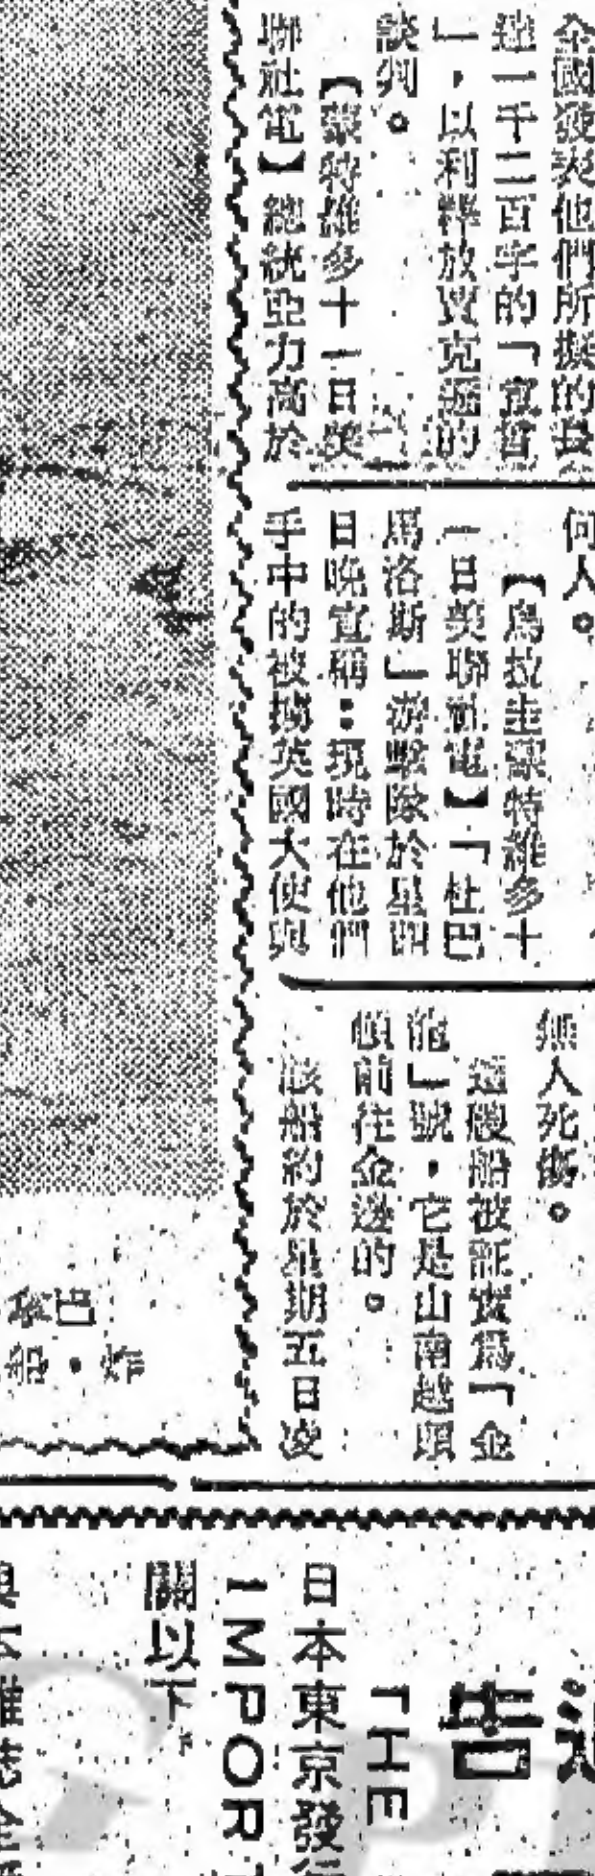 全國發表他們所擬的長
達一千二百字的「宣言
」，以利釋放賈克遜的
談判。
【蒙特維多十一日美
聯社電】總統亞力高於
何人。
【烏拉圭蒙特維多十
一日美聯社電】「杜巴
馬洛斯」游擊隊於星期四
日晚宣稱：現時在他們
手中的被擄英國大使與
無人死傷。
這艘船被証實爲「金
龍」號，它是由南越頭
頓前往金邊的。
該船約於星期五日凌
巴
船，炸
告
THE
日本東京發行
IMPOR
關以下
雜誌全